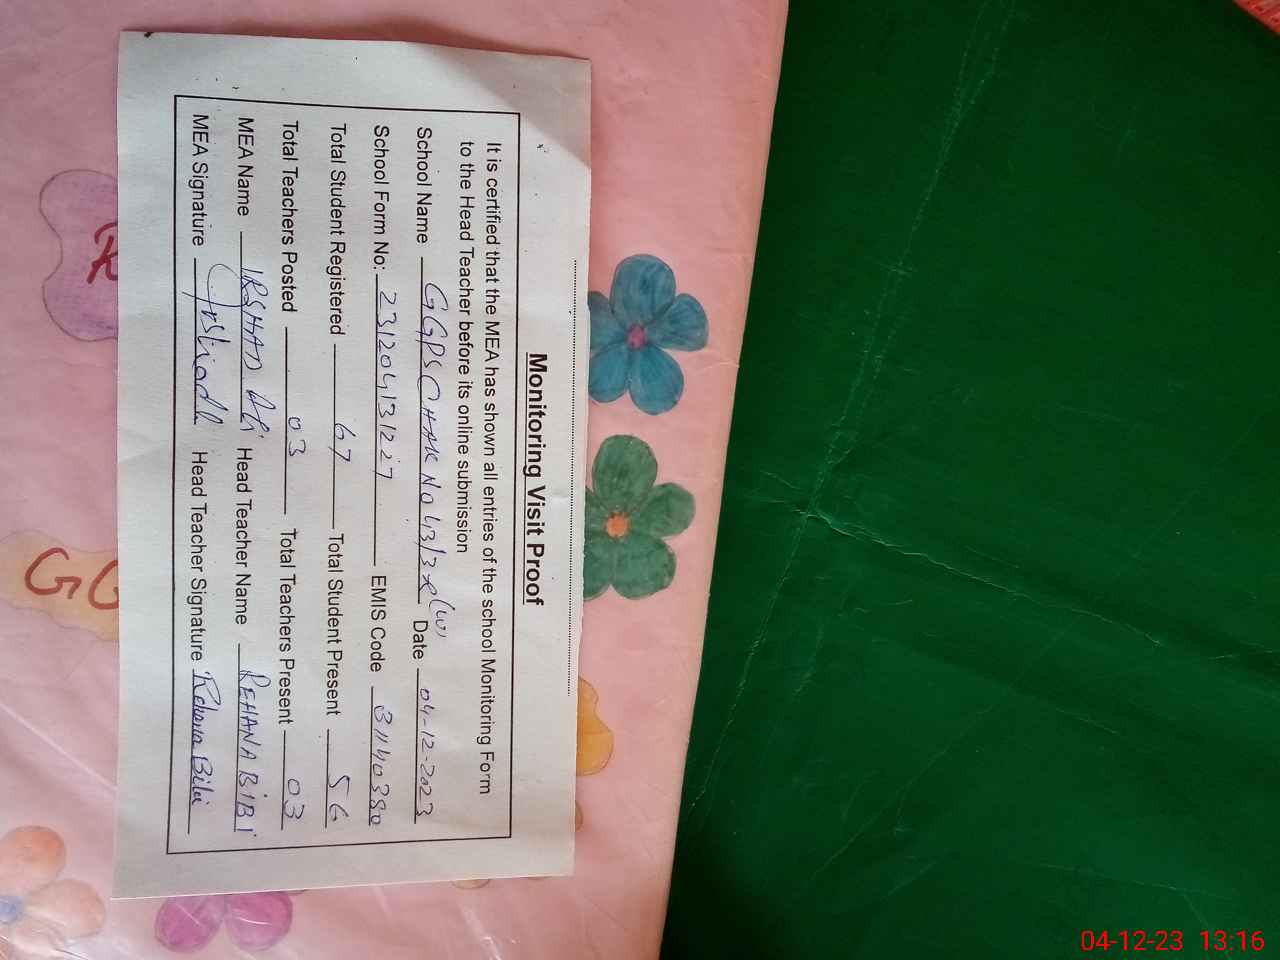 Monitoring Visit Proof
It is certified that the MEA has shown all entries of the school Monitoring Form
to the Head Teacher before its online submission
School Name GGPS CHAK NO 43/3R(W) Date 04-12-2023
School Form No: 23120413127 EMIS Code 31140380
Total Student Registered 67 Total Student Present 56
Total Teachers Posted 03 Total Teachers Present 03
MEA Name IRSHAD Ali Head Teacher Name REHANA BIBI
MEA Signature Irshad Head Teacher Signature Rehana Bibi
GG
04-12-23 13:16